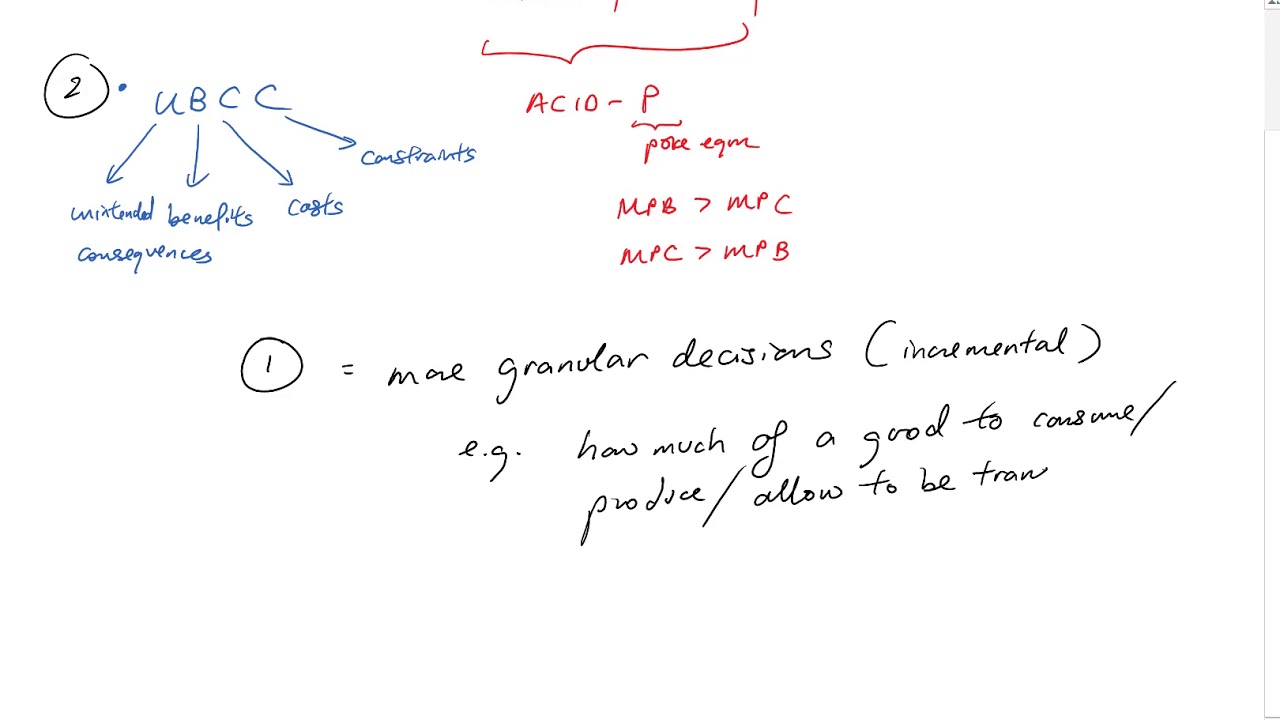 2 • UBCC
unintended benefits costs constraints
consequences
ACID - P
poke eqm
MPB > MPC
MPC > MPB
1 = more granular decisions (incremental)
e.g. how much of a good to consume/
produce/allow to be tran